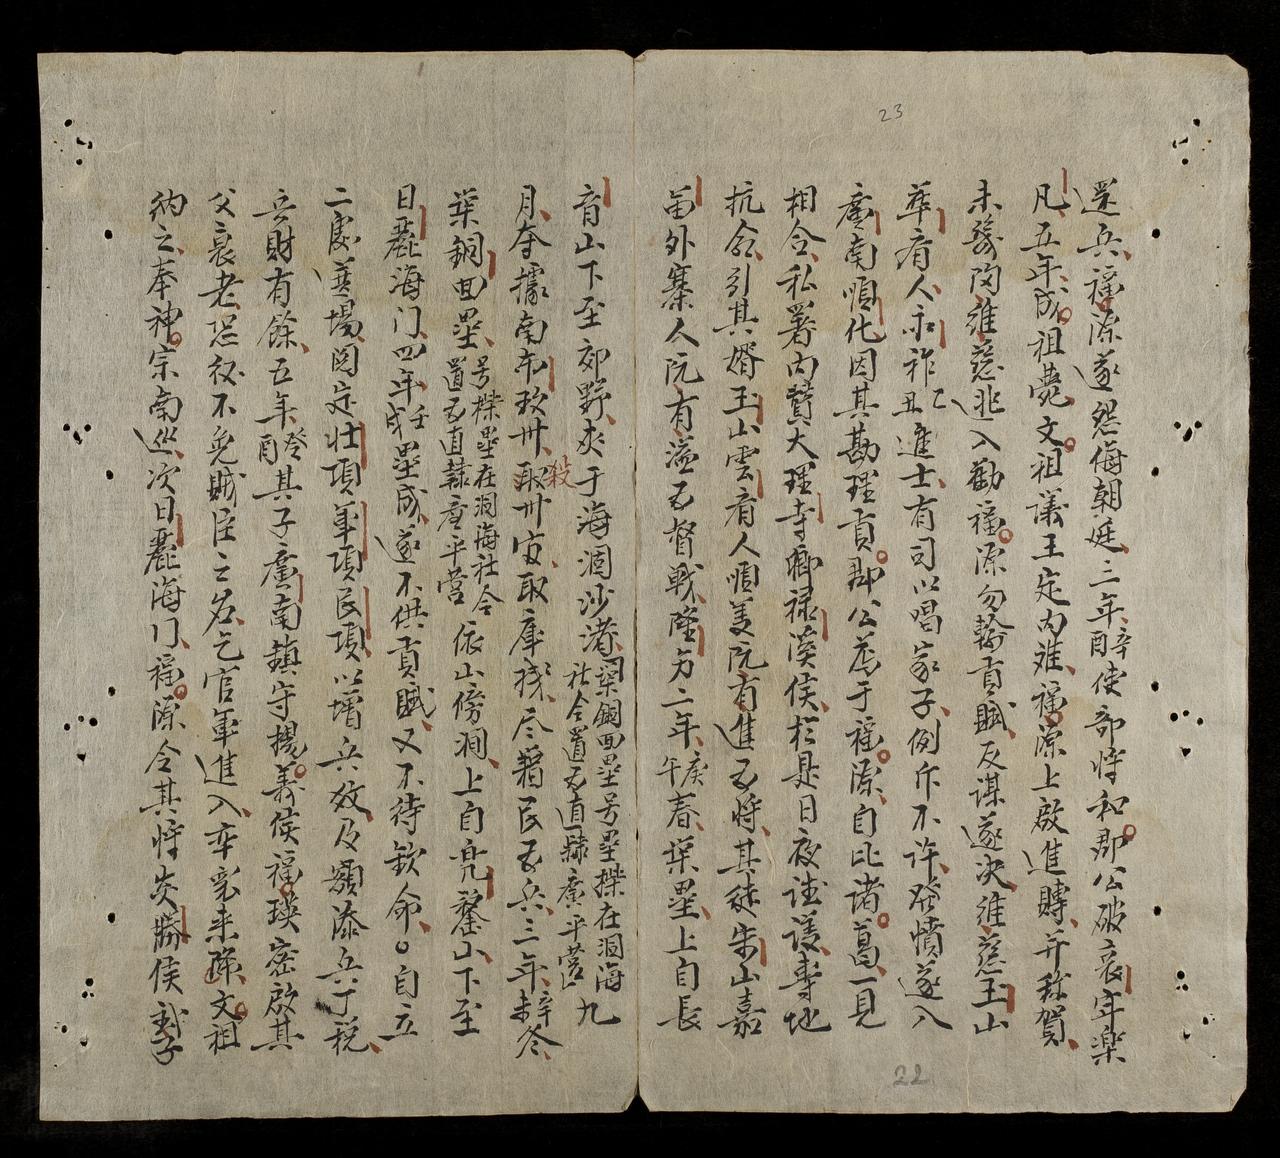 23
還兵福源遂怨侮朝廷三年辛酉使部將和郡公破哀牢楽
凡五年成祖薨文祖議王定内难福源上啟進賻并称賀
未發陶維慈逃入勸福源勿輸貢賦反謀遂决維慈玉山
華有人永祚乙丑進士有司以唱家子例斥不許發憤遂入
廣南順化因其勘理貢郡公荐于福源自比諸葛一見
相合私署内賛大理寺卿禄溪侯於是日夜謀議專地
抗命引其婿玉山雲有人順美阮有進為將其徒朱山嘉
苗外寨人阮有溢為督戰隆为二年庚午春築壘上自長
育山下至郊野夾于海涸沙渚築銅囬壘号壘搩在洞海社令置為直隸廣平營九
月夺據南布政卅殺取卅官取庫残尽籍民為兵三年辛未冬
築銅囬壘号搩壘在洞海社令置為直隸廣平營依山傍澗上自兠鍪山下至
日麗海门四年壬戌壘成遂不供貢賦又不待欽命自立
二處塲閲定壮項軍項民項以增兵效及額添兵丁税
兵財有餘五年癸酉其子廣南鎮守揚義侯福瑛密啟其
父衰老恐後不免賊臣之名乞官軍進入卒兇来降文祖
納之奉神宗南巡次日麗海门福源令其將炎勝侯
22